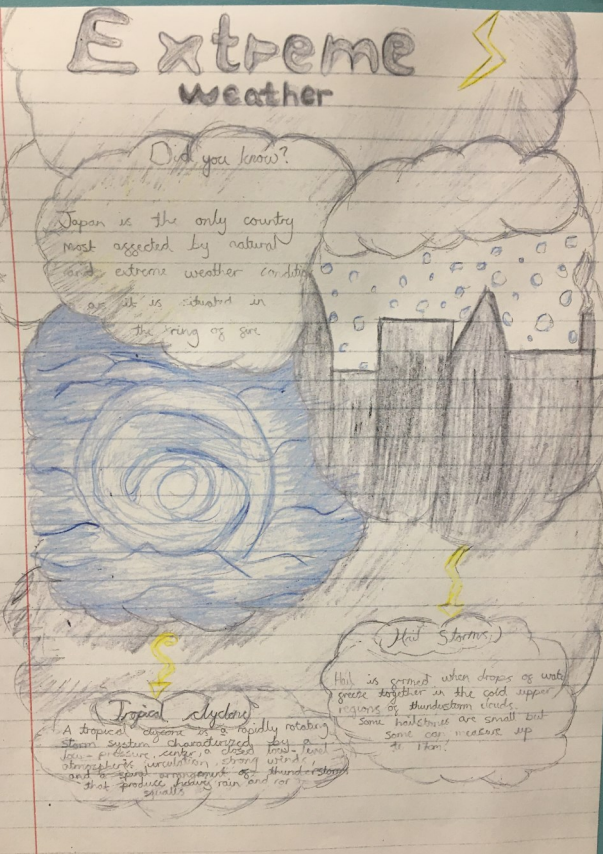 Extreme
Weather
Did you know?
Japan is the only country
most affected by natural
and extreme weather condition
as it is situated in
the ring of fire
Hail Storms
Hail is formed when drops of wate
freeze together in the cold upper
regions of thunderstorm clouds.
Some hailstones are small but
some can measure up
to
Tropical clyclone
A tropical clycone is a rapidly rotating
storm system characterized by a
low-pressure center, a closed low-level
atmospheric circulation, strong winds,
and a spiral arrangement of thunderstorms
that produce heavy rain and or
squalls